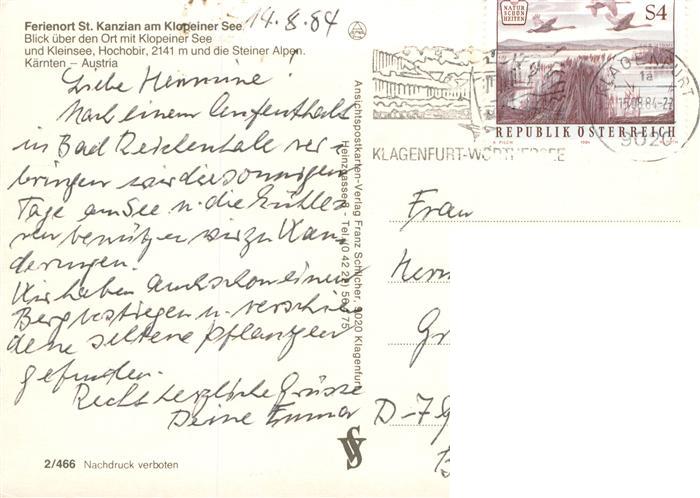 Ferienort St. Kanzian am Klopeiner See
14.8.84
Blick über den Ort mit Klopeiner See
und Kleinsee, Hochobir, 2141 m und die Steiner Alpen.
Kärnten – Austria
Liebe Hermine!
Nach einem Aufenthalt
in Bad Reichenhall ver-
bringen wir die sonnigen
Tage am See u. die kühle-
ren benützen wir zu Wan-
derungen.
Wir haben auch schon einen
Berg bestiegen u. verschie-
dene seltene Pflanzen
gefunden.
Recht herzliche Grüsse
Deine Emma
2/466 Nachdruck verboten
Ansichtspostkarten-Verlag Franz Schilcher, 9020 Klagenfurt
Heinzgasse 8 - Tel. (0 42 22) 56 75
NATUR
SCHÖN
HEITEN
S4
REPUBLIK ÖSTERREICH
A. PILCH
1984
KLAGENFURT
1a
15.08.84-22
9020
KLAGENFURT-WÖRTHERSEE
Frau
Herm
Gr
D-79